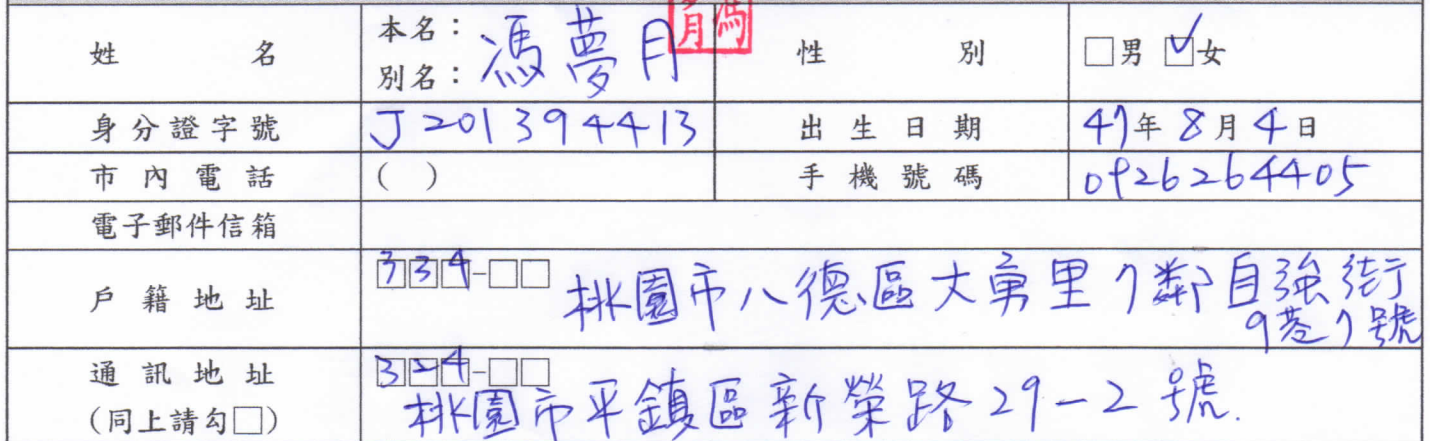 姓名 本名：馮夢月 別名： 性別 □男 ☑女
月馮
身分證字號 J201394413 出生日期 47年8月4日
市內電話 ( ) 手機號碼 0926264405
電子郵件信箱
戶籍地址 334-□□ 桃園市八德區大勇里7鄰自強街
9巷7號
通訊地址 324-□□
(同上請勾□) 桃園市平鎮區新榮路29-2號.